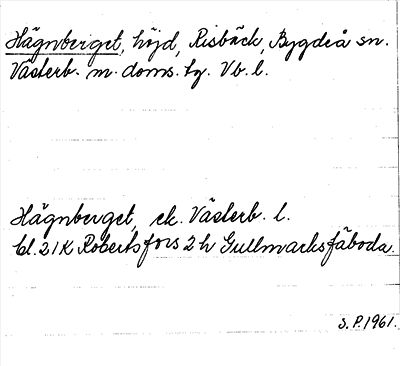 Hägnberget, höjd, Risbäck, Bygdeå sn.
Västerb. m. doms. tg. Vb. l.
Hägnberget, ek. Västerb. l.
bl. 21K Robertsfors 2 h Gullmarksfäboda.
S.P. 1961.